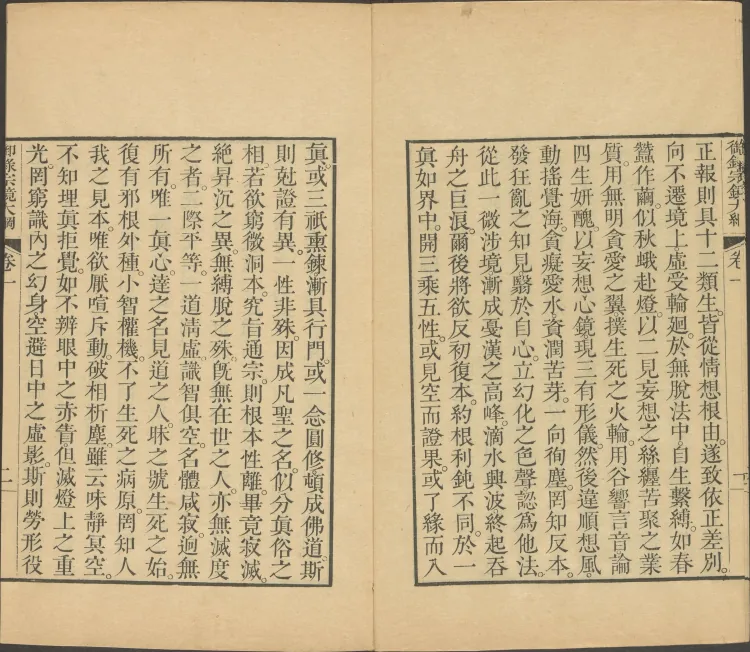 正報則具十二類生。皆從情想根由。遂致依正差別。
向不遷境上。虛受輪迴。於無脫法中。自生繫縛。如春
蠶作繭。似秋蛾赴燈。以二見妄想之絲。纏苦聚之業
質。用無明貪愛之翼。撲生死之火輪。用谷響言音。論
四生妍醜。以妄想心鏡。現三有形儀。然後違順想風。
動搖覺海。貪癡愛水。資潤苦芽。一向徇塵。罔知反本。
發狂亂之知見。翳於自心。立幻化之色聲。認爲他法。
從此一微涉境。漸成戞漢之高峰。滴水興波。終起吞
舟之巨浪。爾後將欲反初復本。約根利鈍不同。於一
眞如界中。開三乘五性。或見空而證果。或了緣而入
卷一
眞。或三祇熏鍊。漸具行門。或一念圓修。頓成佛道。斯
則剋證有異。一性非殊。因成凡聖之名。似分眞俗之
相。若欲窮微洞本。究旨通宗。則根本性離。畢竟寂滅。
絕昇沉之異。無縛脫之殊。旣無在世之人。亦無滅度
之者。二際平等。一道清虛。識智俱空。名體咸寂。迥無
所有。唯一眞心。達之名見道之人。昧之號生死之始。
復有邪根外種。小智權機。不了生死之病原。罔知人
我之見本。唯欲厭喧斥動。破相析塵。雖云味靜冥空。
不知埋眞拒覺。如不辨眼中之赤眚。但滅燈上之重
光。罔窮識內之幻身。空避日中之虛影。斯則勞形役
御錄宗鏡大綱 卷一 二